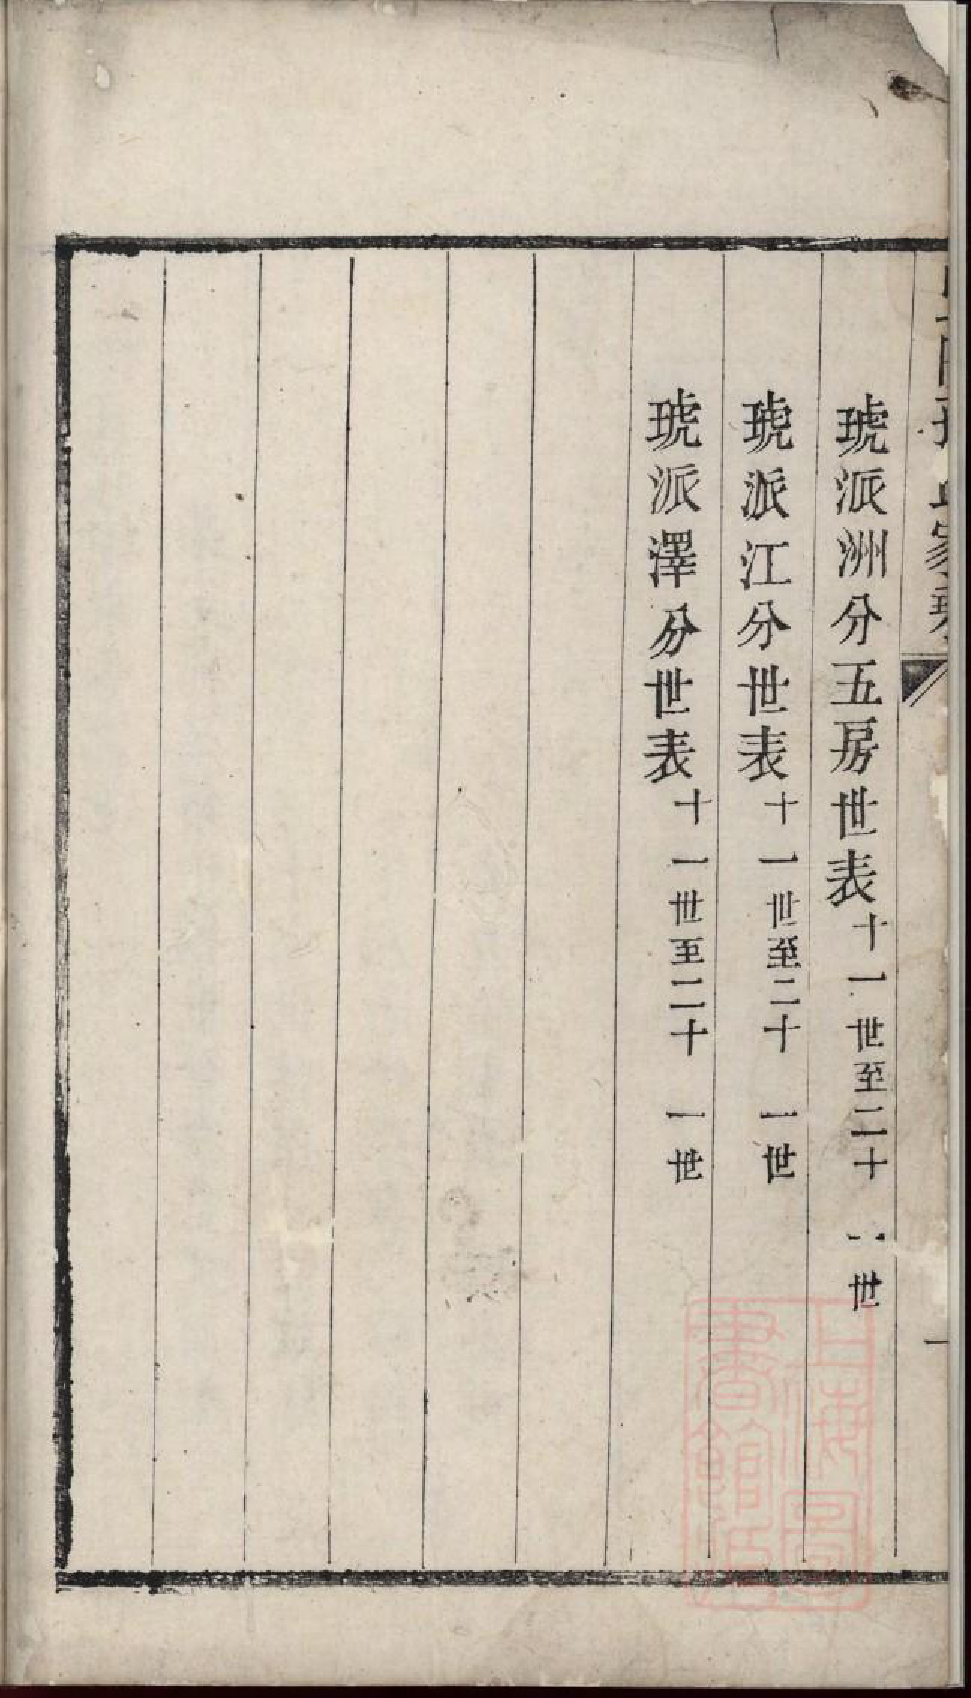 琥派洲分五房世表十一世至二十一世
琥派江分世表十一世至二十一世
琥派澤分世表十一世至二十一世
一
上海圖書館藏